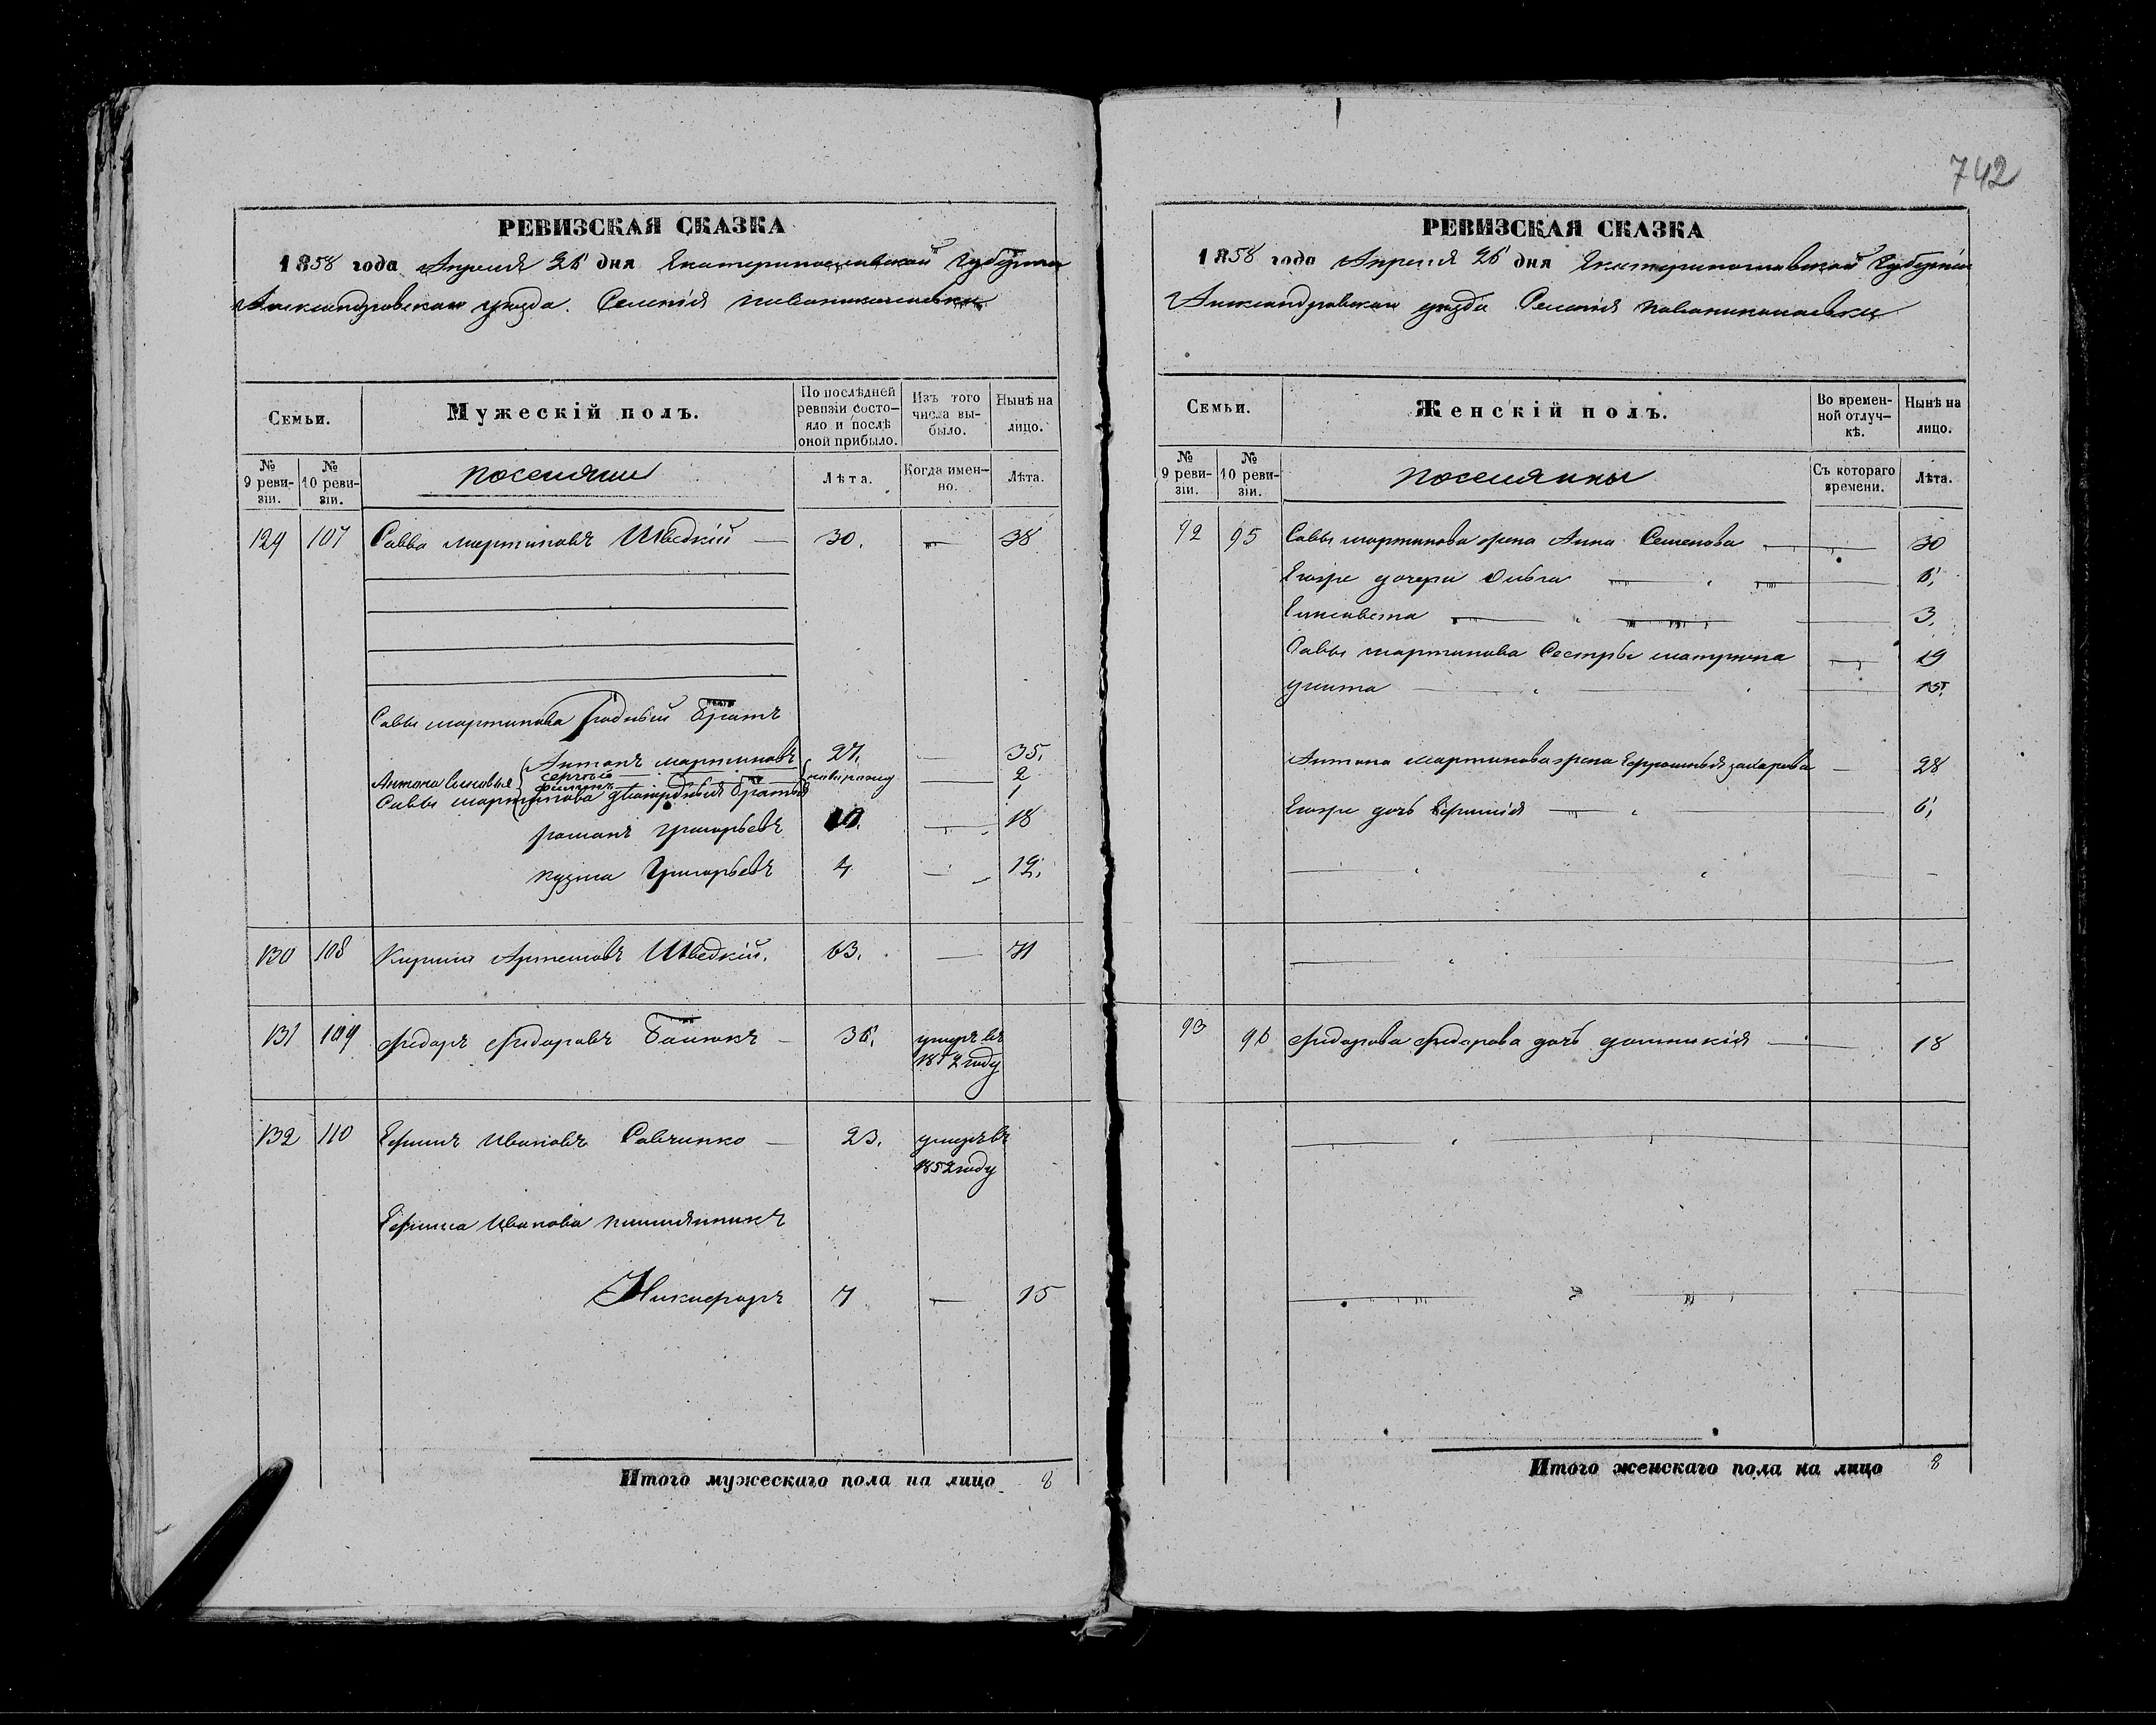 742
РЕВИЗСКАЯ СКАЗКА
1858 года Апреля 26 дня Екатеринославской Губернии
Александровскаго уезда. Селенія Новониколаевки
Семьи.
Мужескій полъ.
По послѣдней ревизіи состо-
яло и послѣ
оной прибыло.
Изъ того
числа вы-
было.
Нынѣ на
лицо.
№
9 реви-
зіи.
№
10 реви-
зіи.
поселяне
Лѣта.
Когда имен-
но.
Лѣта.
129 107 Савва мартиновъ Шведкій 30. — 38
Савы мартинова родный братъ
Антонъ мартиновъ 27. — 35.
Антона сыновья сергей — 2
филипъ — 1
Саввы мартинова двоюродныя братья
романъ григорьевъ 10. — 18
кузма Григорьевъ 4 — 12.
130 108 Кирило Артемовъ Шведкій. 63. — 71
131 109 Федоръ Федоровъ 36. умеръ въ
году
132 110 Ефимъ Ивановъ Савченко — 23. умеръ въ
1852 году
Ефима Иванова племянникъ
Никифоръ 7 — 15
Итого мужескаго пола на лицо 8
РЕВИЗСКАЯ СКАЗКА
1858 года Апреля 26 дня Екатеринославской Губернии
Александровскаго уезда Селенія Новониколаевки
Семьи.
Женскій полъ.
Во времен-
ной отлуч-
кѣ.
Нынѣ на
лицо.
№
9 реви-
зіи.
№
10 реви-
зіи.
поселянки
Съ котораго
времени.
Лѣта.
92 95 Савы мартинова жена Анна Семенова — 30
Егоже дочери — 6,
Елисавета — 3.
Савы мартинова Сестры матрона — 19
улита — 15.
Антона мартинова жена Ефросинья захарова — 28
Егоже дочь Ефимія — 6,
93 96 Федорова Федорова дочь домникія — 18
Итого женскаго пола на лицо 8